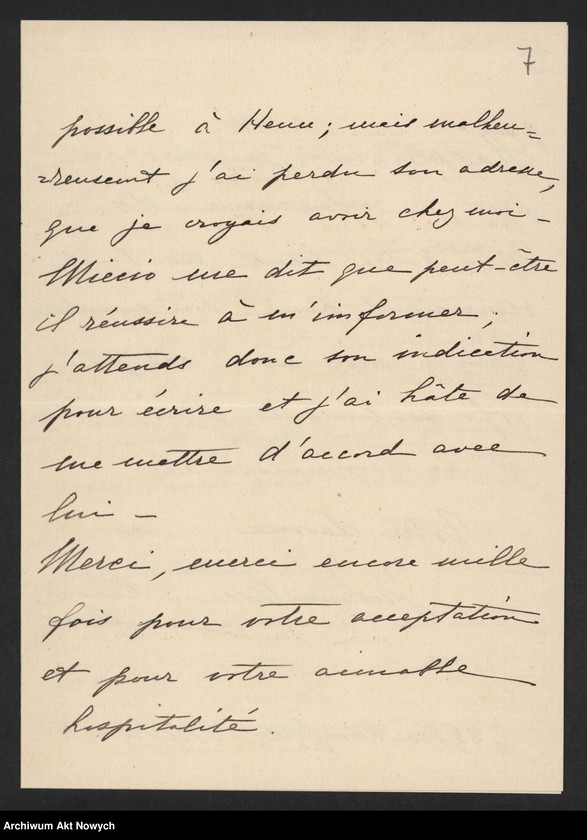 7
possible à Henri ; mais malheu=
=reusement j'ai perdu son adresse,
que je croyais avoir chez moi -
Miccio me dit que peut-être
il réussire à m'informer ;
j'attends donc son indication
pour écrire et j'ai hâte de
me mettre d'accord avec
lui -
Merci, merci encore mille
fois pour votre acceptation
et pour votre aimable
hospitalité.
Archiwum Akt Nowych